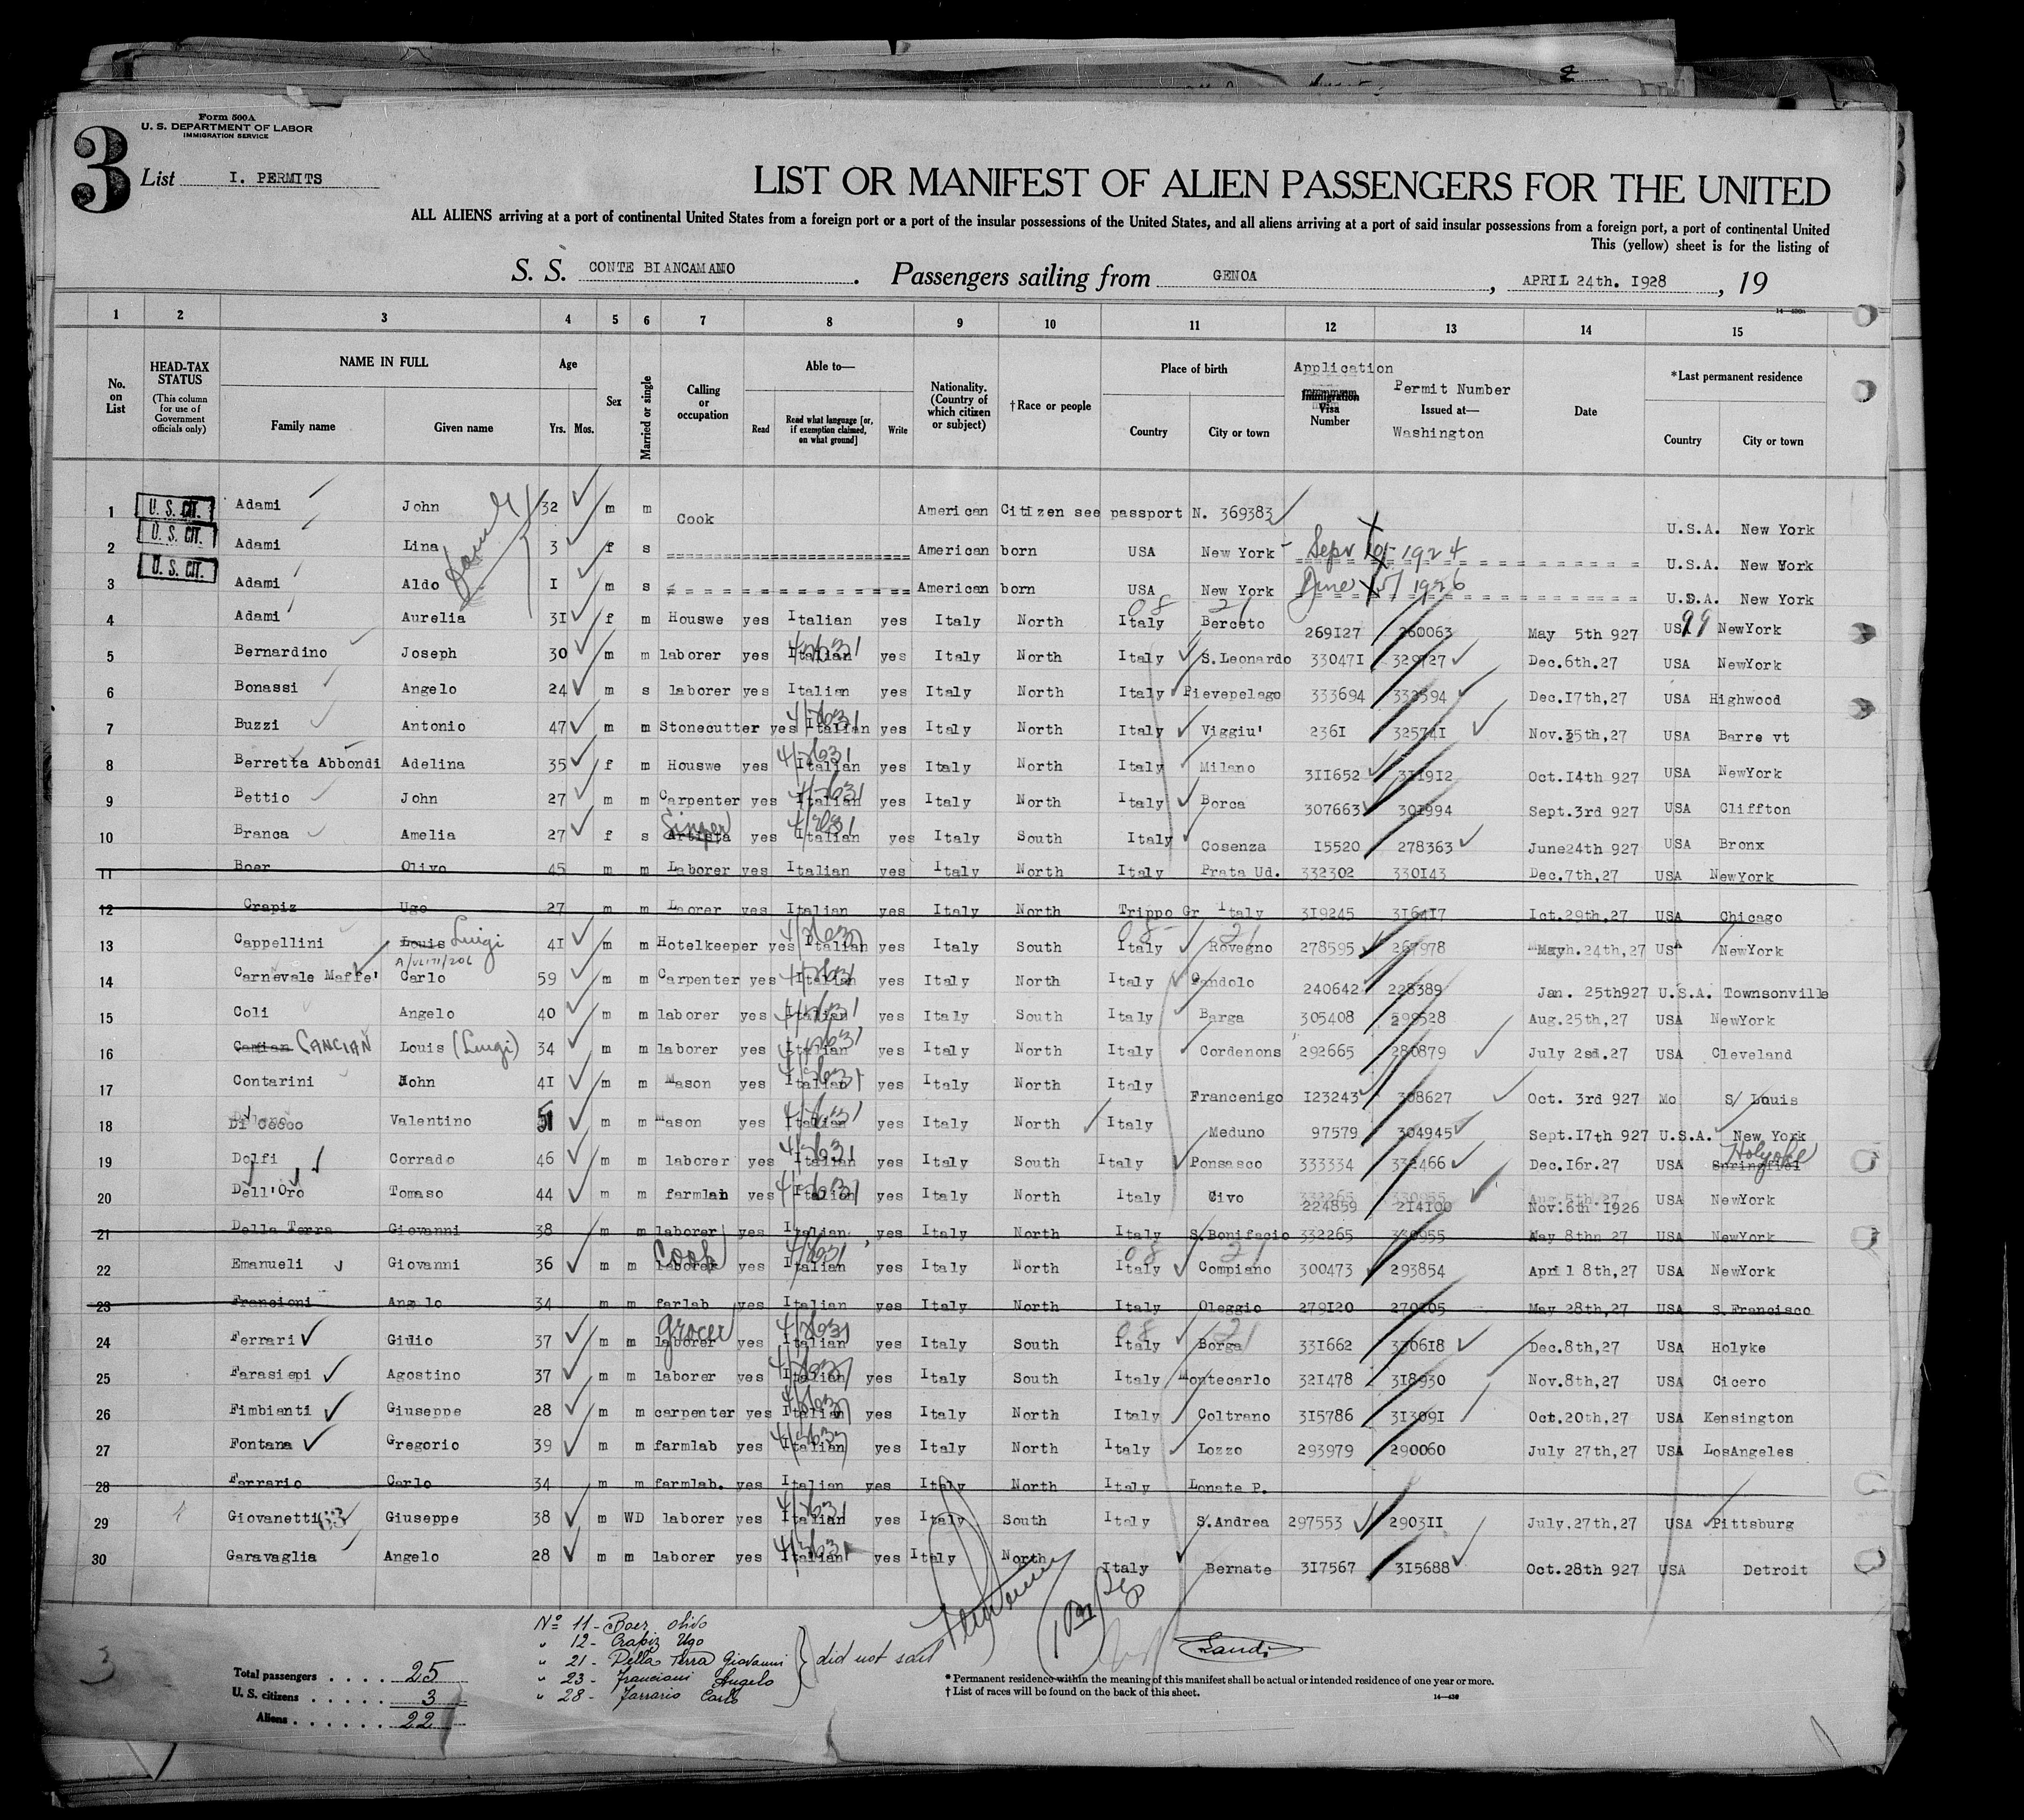 Form 500A
U. S. DEPARTMENT OF LABOR
IMMIGRATION SERVICE
3
List I. PERMITS
LIST OR MANIFEST OF ALIEN PASSENGERS FOR THE UNITED
ALL ALIENS arriving at a port of continental United States from a foreign port or a port of the insular possessions of the United States, and all aliens arriving at a port of said insular possessions from a foreign port, a port of continental United
This (yellow) sheet is for the listing of
S. S. CONTE BIANCAMANO . Passengers sailing from GENOA , APRIL 24th. 1928 , 19
1 2 3 4 5 6 7 8 9 10 11 12 13 14 15
No. on List
HEAD-TAX STATUS (This column for use of Government officials only)
NAME IN FULL Family name Given name
Age Yrs. Mos.
Sex
Married or single
Calling or occupation
Able to— Read Read what language [or, if exemption claimed, on what ground] Write
Nationality. (Country of which citizen or subject)
†Race or people
Place of birth Country City or town
Application Immigration Visa Number
Permit Number Issued at— Washington
Date
*Last permanent residence Country City or town
1 U. S. CIT. Adami John 32 m m Cook American Citizen see passport N. 369383 U.S.A. New York
2 U. S. CIT. Adami Lina 3 f s American born USA New York 1924 U.S.A. New York
3 U. S. CIT. Adami Aldo I m s American born USA New York June 1926 U.S.A. New York
4 Adami Aurelia 31 f m Houswe yes Italian yes Italy North Italy Berceto 269127 260063 May 5th 927 USA NewYork
5 Bernardino Joseph 30 m m laborer yes Italian yes Italy North Italy S.Leonardo 330471 329727 Dec.6th.27 USA NewYork
6 Bonassi Angelo 24 m s laborer yes Italian yes Italy North Italy Pievepelago 333694 332594 Dec.17th,27 USA Highwood
7 Buzzi Antonio 47 m m Stonecutter yes Italian yes Italy North Italy Viggiu' 2361 325741 Nov. 27 USA Barre vt
8 Berretta Abbondi Adelina 35 f m Houswe yes Italian yes Italy North Italy Milano 311652 311912 Oct.14th 927 USA NewYork
9 Bettio John 27 m m Carpenter yes Italian yes Italy North Italy Borca 307663 301994 Sept.3rd 927 USA Cliffton
10 Branca Amelia 27 f s Artista Singer yes Italian yes Italy South Italy Cosenza 15520 278363 June24th 927 USA Bronx
11 Boer Olivo 45 m m Laborer yes Italian yes Italy North Italy Prata Ud. 332302 330143 Dec.7th,27 USA NewYork
12 Crapiz Ugo 27 m m Laorer yes Italian yes Italy North Trippo Gr Italy 319245 316417 Ict.29th,27 USA Chicago
13 Cappellini Louis Luigi 41 m m Hotelkeeper yes Italian yes Italy South Italy Rovegno 278595 267978 24th,27 US NewYork
14 Carnevale Maffe' Carlo 59 m m Carpenter yes Italian yes Italy North Italy Candolo 240642 228389 Jan. 25th927 U.S.A. Townsonville
15 Coli Angelo 40 m m laborer yes Italian yes Italy South Italy Barga 305408 299528 Aug.25th,27 USA NewYork
16 CANCIAN Louis (Luigi) 34 m m laborer yes Italian yes Italy North Italy Cordenons 292665 280879 July 2sd.27 USA Cleveland
17 Contarini John 41 m m Mason yes Italian yes Italy North Italy Francenigo 123243 308627 Oct. 3rd 927 Mo S/ Louis
18 Di Cocco Valentino 51 m m Mason yes Italian yes Italy North Italy Meduno 97579 304945 Sept.17th 927 U.S.A. New York
19 Dolfi Corrado 46 m m laborer yes Italian yes Italy South Italy Ponsacco 333334 332466 Dec.16r.27 USA Springfiel Holyoke
20 Dell'Oro Tomaso 44 m m farmlab yes Italian yes Italy North Italy Civo 224859 214100 Nov.6th 1926 USA NewYork
21 Della Terra Giovanni 38 m m laborer yes Italian yes Italy North Italy S.Bonifacio 332265 330955 May 8thn 27 USA NewYork
22 Emanueli Giovanni 36 m m laborer Cook yes Italian yes Italy North Italy Compiano 300473 293854 April 8th,27 USA NewYork
23 Francioni Angelo 34 m m farlab yes Italian yes Italy North Italy Oleggio 279120 270205 May 28th,27 USA S.Francisco
24 Ferrari Giulio 37 m m laborer grocer yes Italian yes Italy South Italy Borga 331662 330618 Dec.8th,27 USA Holyke
25 Farasiepi Agostino 37 m m laborer yes Italian yes Italy South Italy Montecarlo 321478 318930 Nov.8th,27 USA Cicero
26 Fimbianti Giuseppe 28 m m carpenter yes Italian yes Italy North Italy Coltrano 315786 313091 Oct.20th,27 USA Kensington
27 Fontana Gregorio 39 m m farmlab yes Italian yes Italy North Italy Lozzo 293979 290060 July 27th,27 USA LosAngeles
28 Farrario Carlo 34 m m farmlab. yes Italian yes Italy North Italy Lonate P.
29 Giovanetti Giuseppe 38 m WD laborer yes Italian yes Italy South Italy S.Andrea 297553 290311 July,27th,27 USA Pittsburg
30 Garavaglia Angelo 28 m m laborer yes Italian yes Italy North Italy Bernate 317567 315688 Oct.28th 927 USA Detroit
Nº 11 - Boer Olivo
" 12 - Crapiz Ugo
" 21 - Della Terra Giovanni
" 23 - Franciani Angelo
" 28 - Farrario Carlo
did not sail
3
Total passengers . . . . 25
U. S. citizens . . . . . 3
Aliens . . . . . . 22
* Permanent residence within the meaning of this manifest shall be actual or intended residence of one year or more.
† List of races will be found on the back of this sheet.
14—430